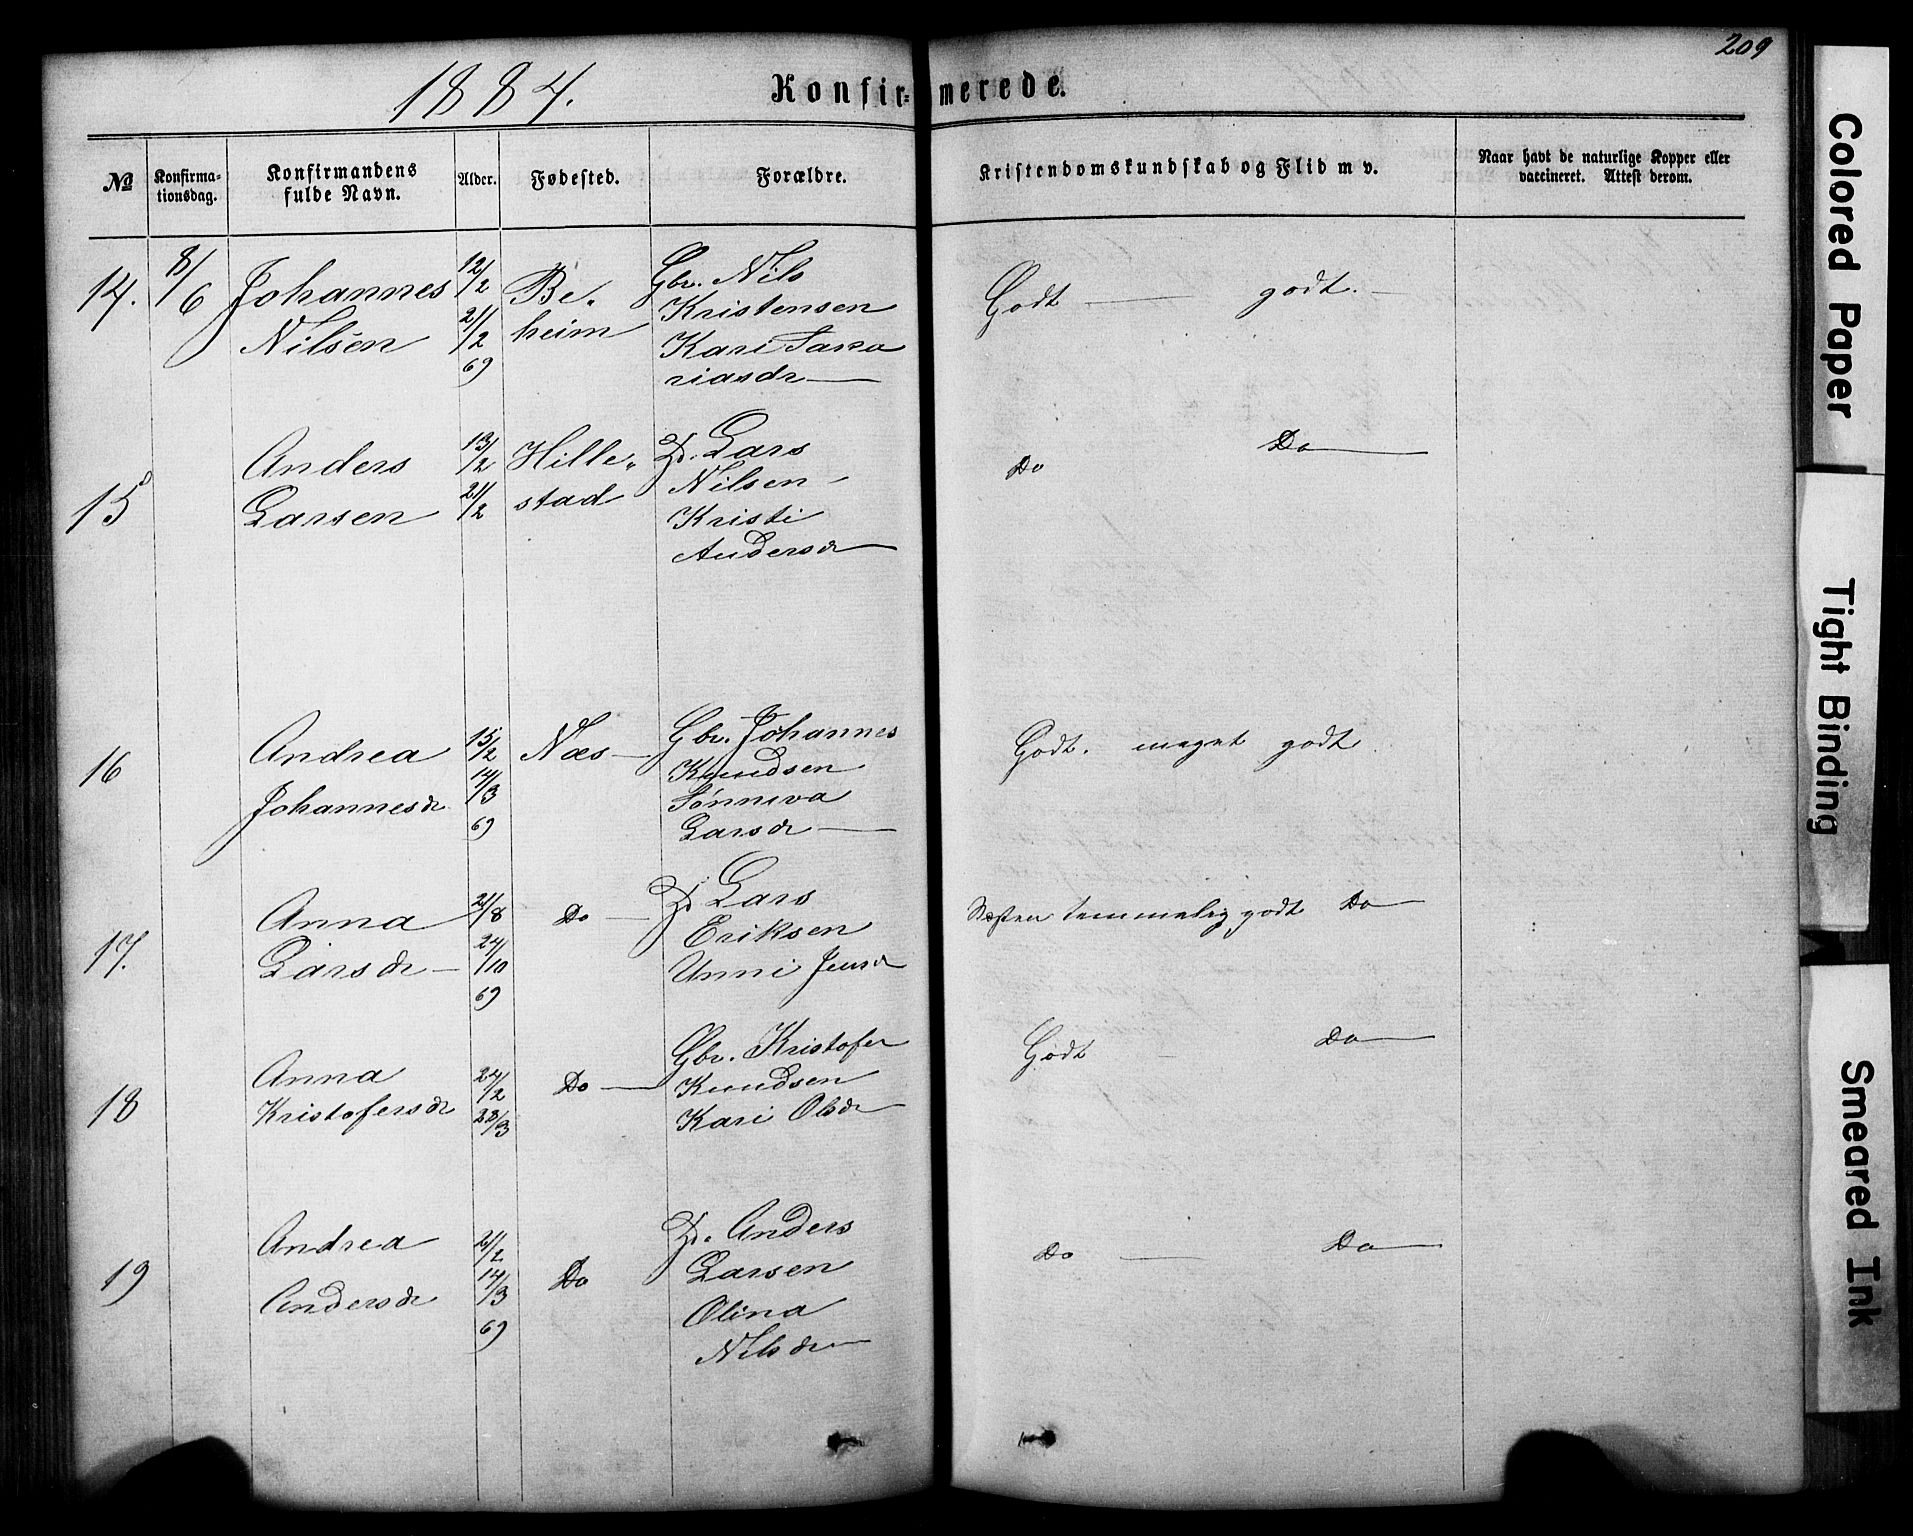 209
1884.
Konfir=merede.
No
Konfirma-
tionsdag.
Konfirmandens
fulde Navn.
Alder.
Fødested.
Forældre.
Kristendomskundskab og Flid m v.
Naar havt de naturlige Kopper eller
vaccineret. Attest derom.
14. 8/6 Johannes 12/2 Be„ Gbr. Nils Godt — godt. —
Nilsen 21/2 heim Kristensen
69 Kari Sakka
riasdr —
15 Anders 13/2 Hille„ Do. Lars Do Do —
Larsen 21/2 stad Nilsen -
Kristi
Andersdr —
16 Andrea 15/2 Næs — Gbr. Johannes Godt. meget godt.
Johannesdr 14/3 Knudsen
69 Sønneva
Larsdr —
17. Anna 21/8 Do — Do. Lars Næsten temmelig godt Do —
Larsdr — 24/10 Eriksen
69 Unni Jensdr
18 Anna 24/2 Do — Gbr. Kristofer Godt - Do —
Kristofersdr 22/3 Knudsen
Kari Olsdr —
19 Andrea 21/2 Do Do. Anders Do — Do —
Andersdr 14/3 Larsen
69 Olina
Nilsdr —
Colored Paper
Tight Binding
Smeared Ink